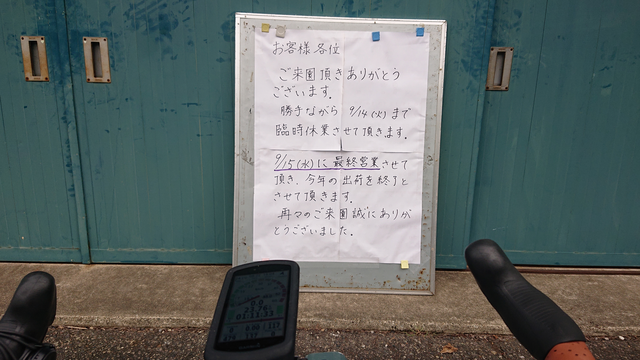 お客様各位
ご来園頂きありがとう
ございます。
勝手ながら 9/14(火)まで
臨時休業させて頂きます。
9/15(水)に最終営業させて
頂き、今年の出荷を終了と
させて頂きます。
再々のご来園誠にありが
とうございました。